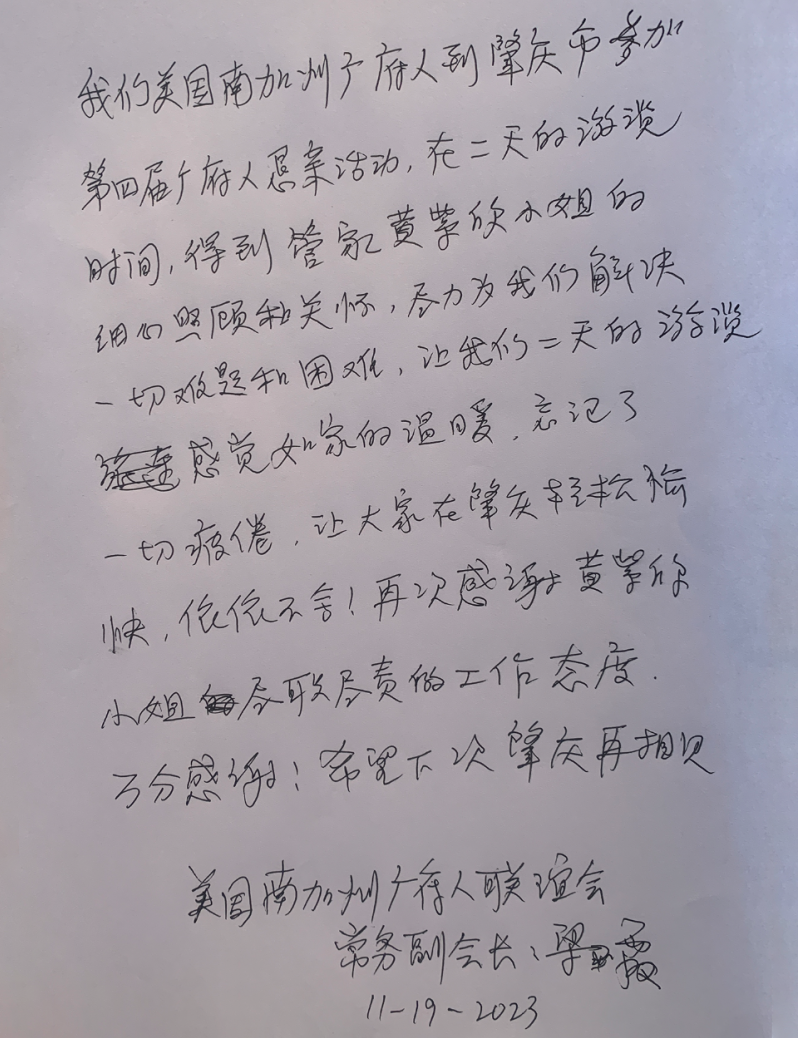 我们美国南加州广府人到肇庆市参加
第四届广府人恳亲活动,在二天的游览
时间,得到管家黄紫欣小姐的
细心照顾和关怀,尽力为我们解决
一切难题和困难,让我们二天的游览
感觉如家的温暖,忘记了
一切疲倦,让大家在肇庆轻松愉
快,依依不舍!再次感谢黄紫欣
小姐尽职尽责的工作态度.
万分感谢!希望下次肇庆再相见
美国南加州广府人联谊会
常务副会长:梁霞
11-19-2023